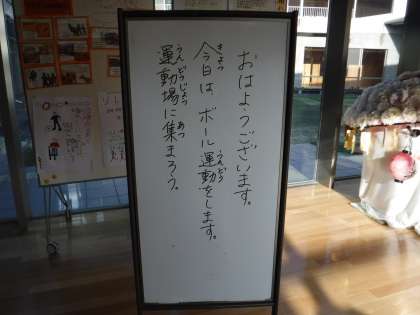 おはようございます。
今日は、ボール運動をします。
運動場に集まろう。